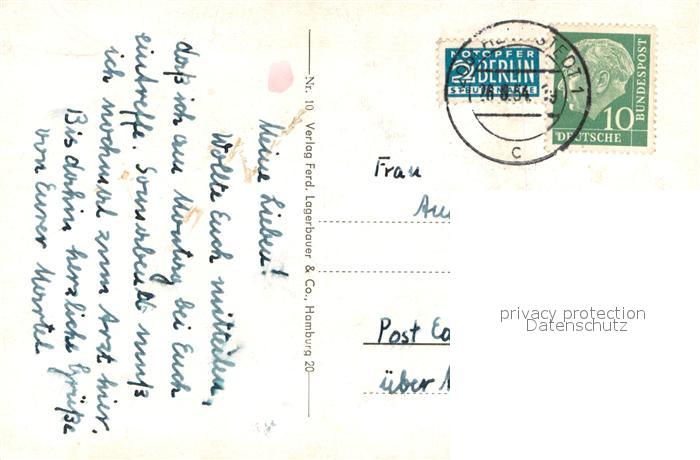 Meine Lieben!
Wollte Euch mitteilen,
daß ich am Montag bei Euch
eintreffe. Sonnabend muß
ich nochmal zum Arzt hier.
Bis dahin herzliche Grüße
von Eurer
Nr. 10 Verlag Ferd. Lagerbauer & Co., Hamburg 20
NOTOPFER
2 BERLIN
STEUERMARKE
10
DEUTSCHE
BUNDESPOST
c
Frau
Post
über
privacy protection
Datenschutz